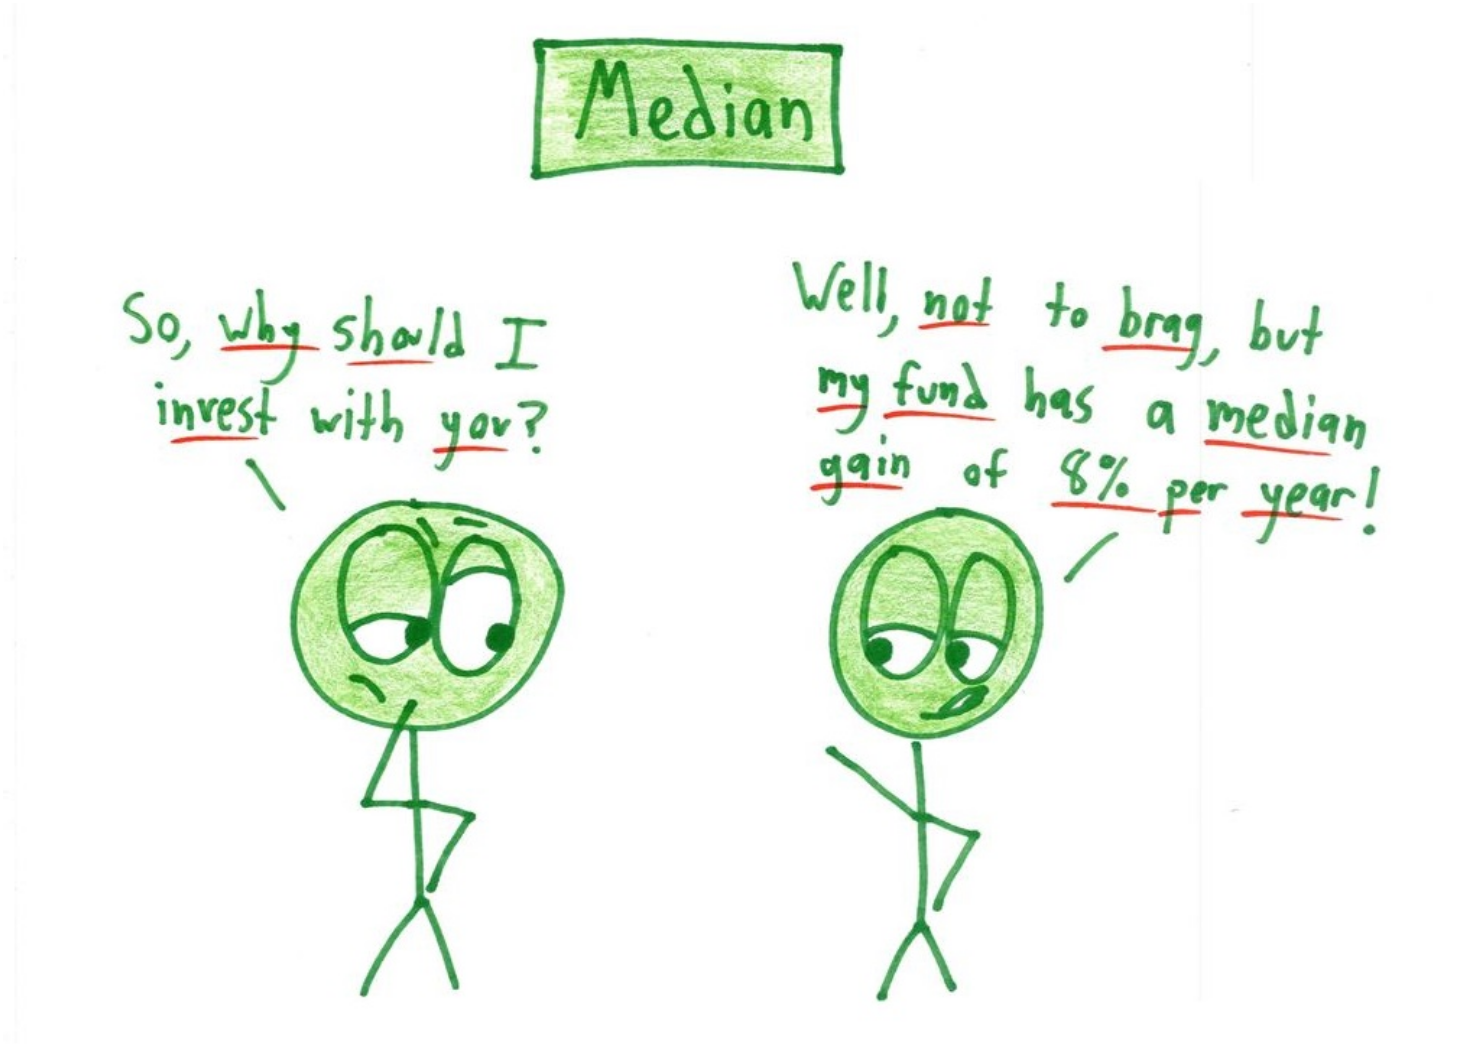 Median
So, why should I
invest with you?
Well, not to brag, but
my fund has a median
gain of 8% per year!